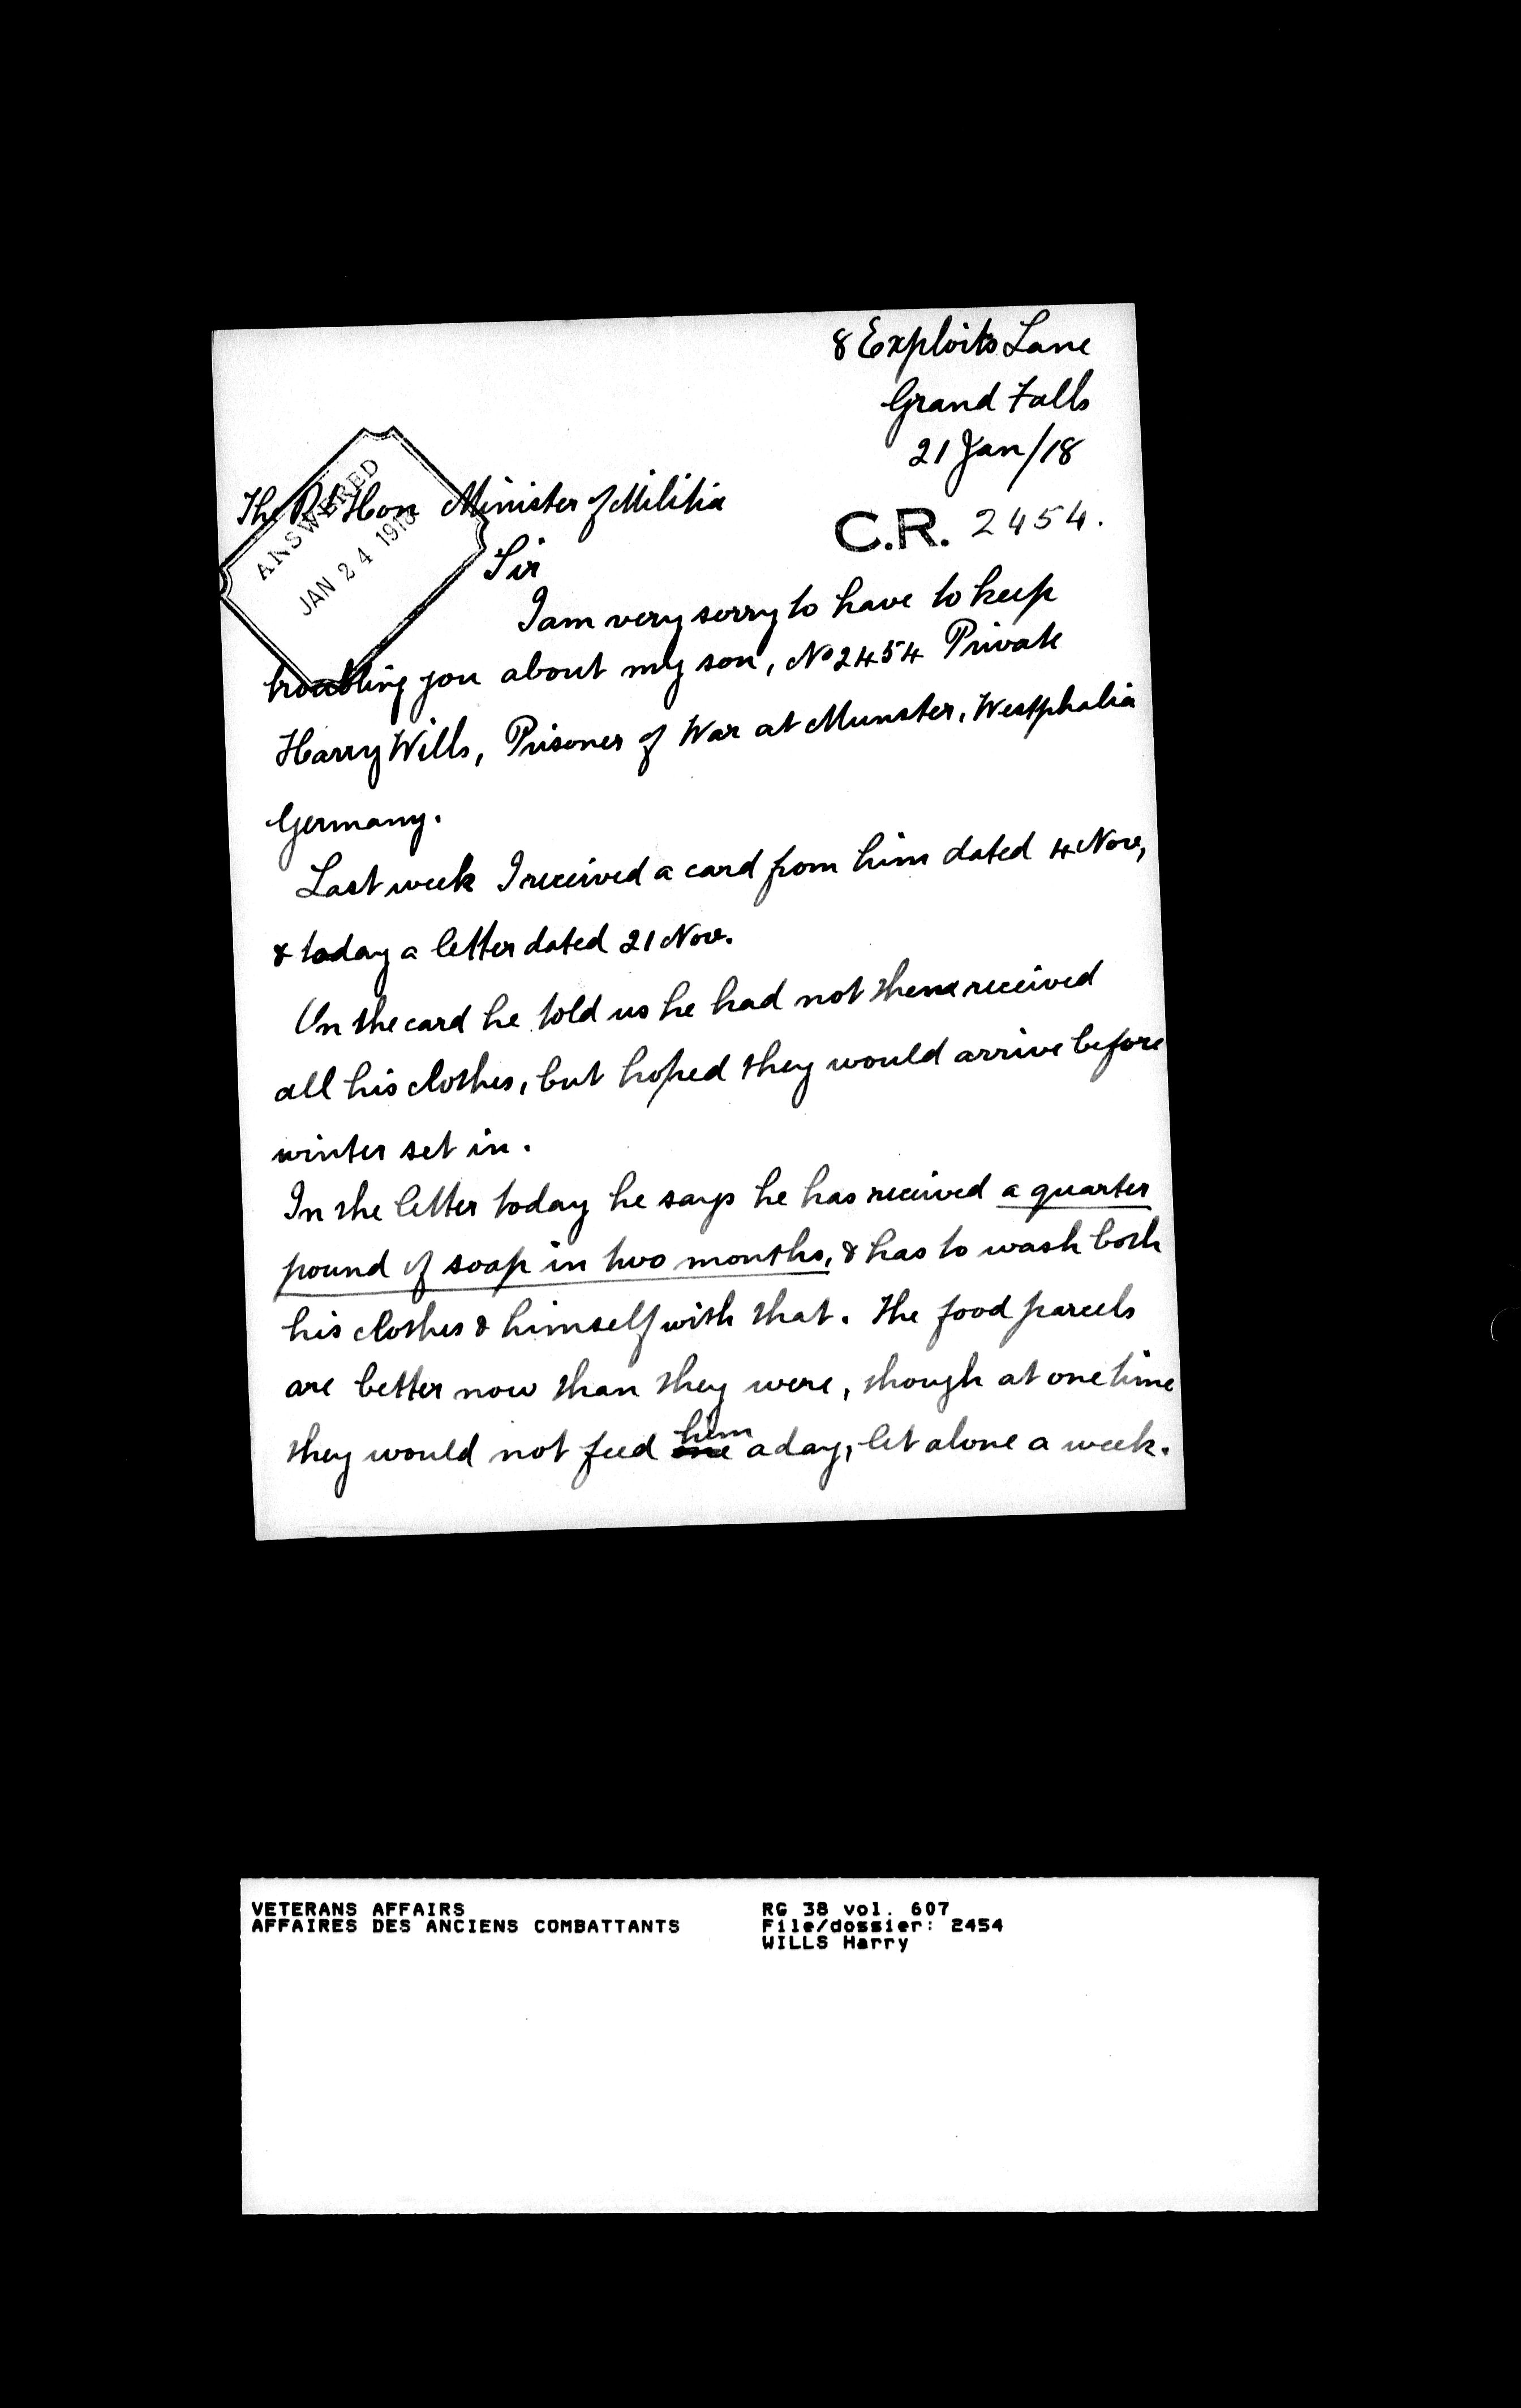 8 Exploits Lane
Grand Falls
21 Jan/18
The Rt Hon Minister of Militia
ANSWERED
JAN 24 1918
C.R. 2454.
Sir
I am very sorry to have to keep
troubling you about my son, No 2454 Private
Harry Wills, Prisoner of War at Munster, Westphalia
Germany.
Last week I received a card from him dated 4 Nov,
& today a letter dated 21 Nov.
On the card he told us he had not then received
all his clothes, but hoped they would arrive before
winter set in.
In the letter today he says he has received a quarter
pound of soap in two months, & has to wash both
his clothes & himself with that. The food parcels
are better now than they were, though at one time
they would not feed him a day, let alone a week.
VETERANS AFFAIRS
AFFAIRES DES ANCIENS COMBATTANTS
RG 38 vol. 607
File/dossier: 2454
WILLS Harry